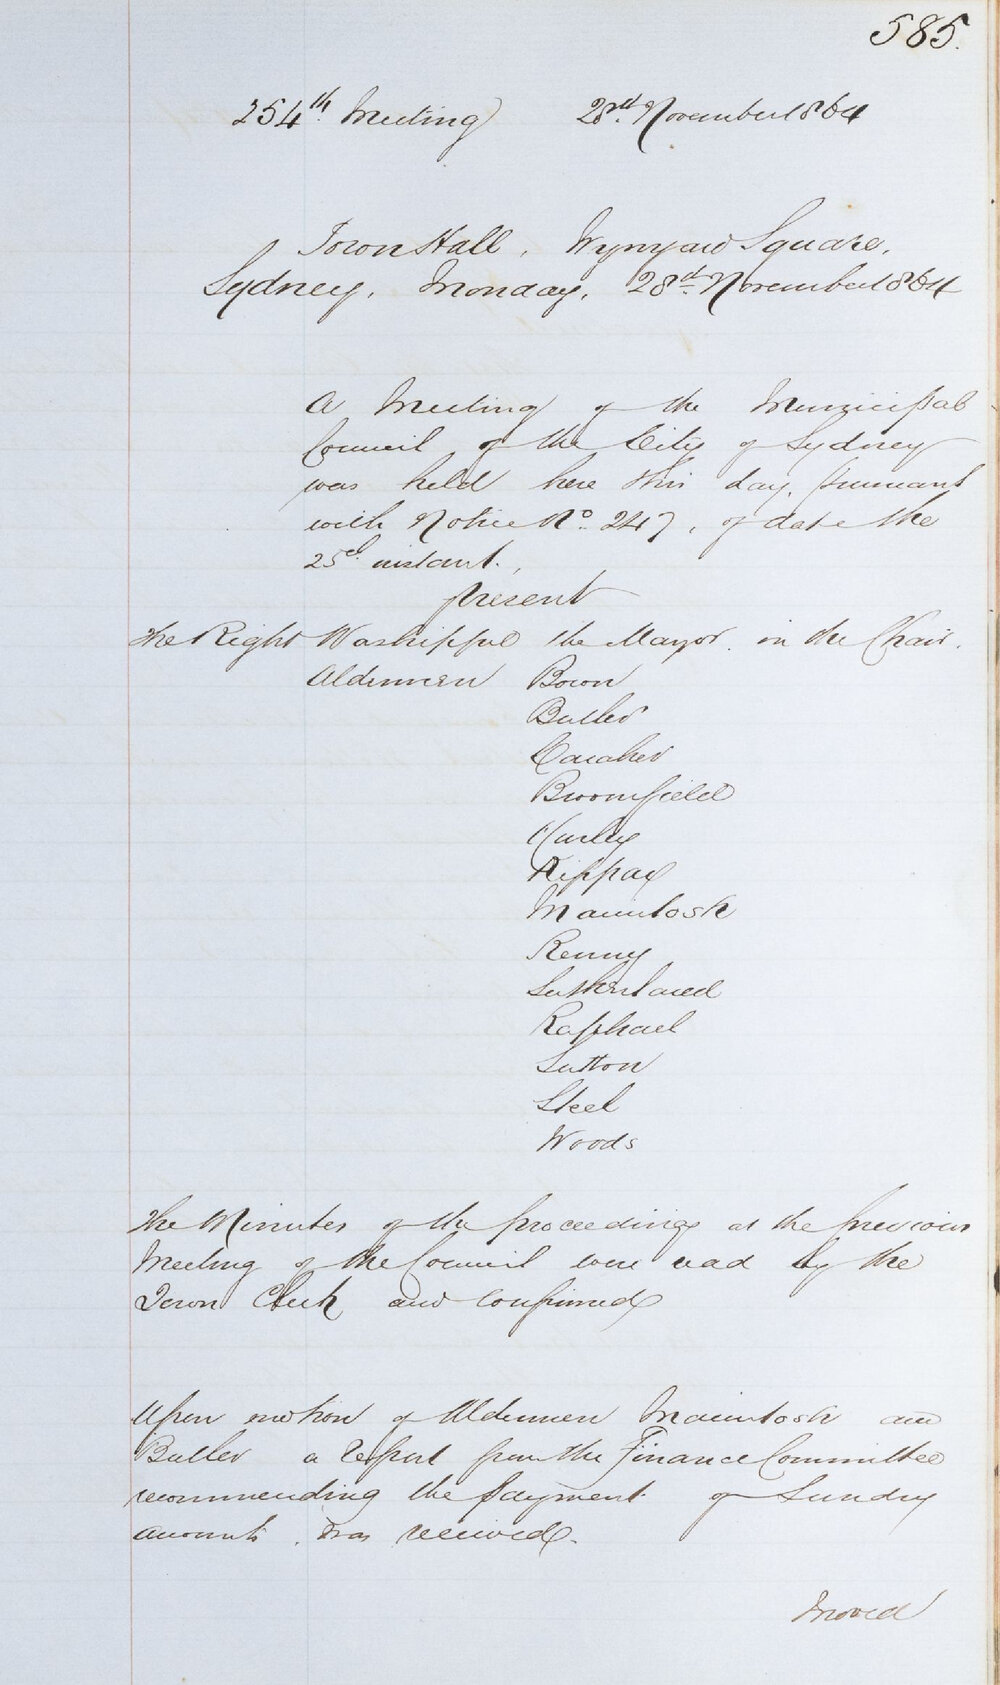 585.
254th. Meeting 28th. November 1864
Town Hall, Wynyard Square,
Sydney, Monday, 28th. November 1864
A Meeting of the Municipal
Council of the City of Sydney
was held here this day, pursuant
with Notice No. 247, of date the
25th. instant.
present
The Right Worshipful the Mayor in the Chair.
Aldermen Bown
Butler
Caraher
Broomfield
Hurley
Kippax
Macintosh
Renny
Sutherland
Raphael
Sutton
Steel
Woods
The Minutes of the proceedings at the previous
Meeting of the Council were read by the
Town Clerk and confirmed
Upon motion of Aldermen Macintosh and
Butler a Report from the Finance Committee
recommending the payment of Sundry
amounts, was received.
Moved